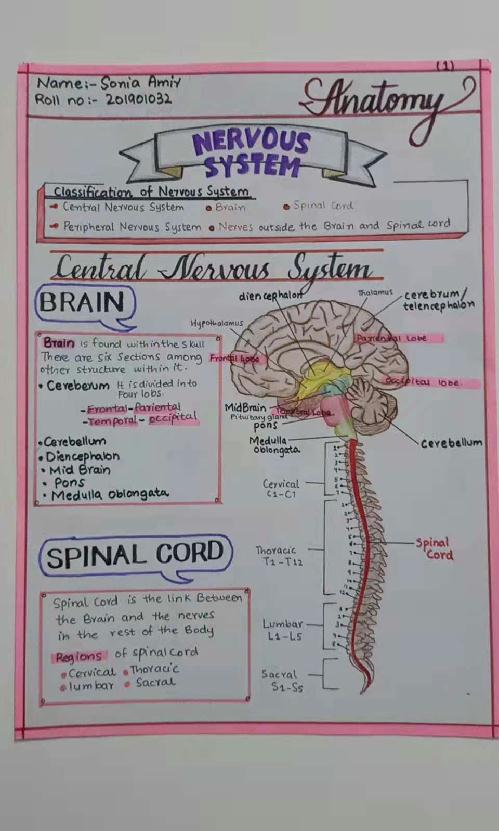 (1)
Name:- Sonia Amir
Roll no:- 201901032
Anatomy
NERVOUS
SYSTEM
Classification of Nervous System
Central Nervous System • Brain • Spinal Cord
Peripheral Nervous System • Nerves outside the Brain and Spinal cord
Central Nervous System
BRAIN
Brain is found within the skull
There are six sections among
other structure within it.
• Cereberum It is divided into
Four lobs.
-Frontal-Pariental
-Temporal-occipital
•Cerebellum
•Diencephalon
• Mid Brain
• Pons
• Medulla oblongata
diencephalon
Thalamus
cerebrum/
telencephalon
Hypothalamus
Frontal lobe
Pariental lobe
Occipital lobe.
MidBrain
Temporal Lobe.
Pituitary gland
pons
Medulla
oblongata
cerebellum
Cervical
C1-C7
Thoracic
T1-T12
Spinal
Cord
Lumbar
L1-L5
Sacral
S1-S5
SPINAL CORD
Spinal Cord is the link Between
the Brain and the nerves
in the rest of the Body
Regions of spinal cord
• Cervical • Thoracic
• lumbar • Sacral